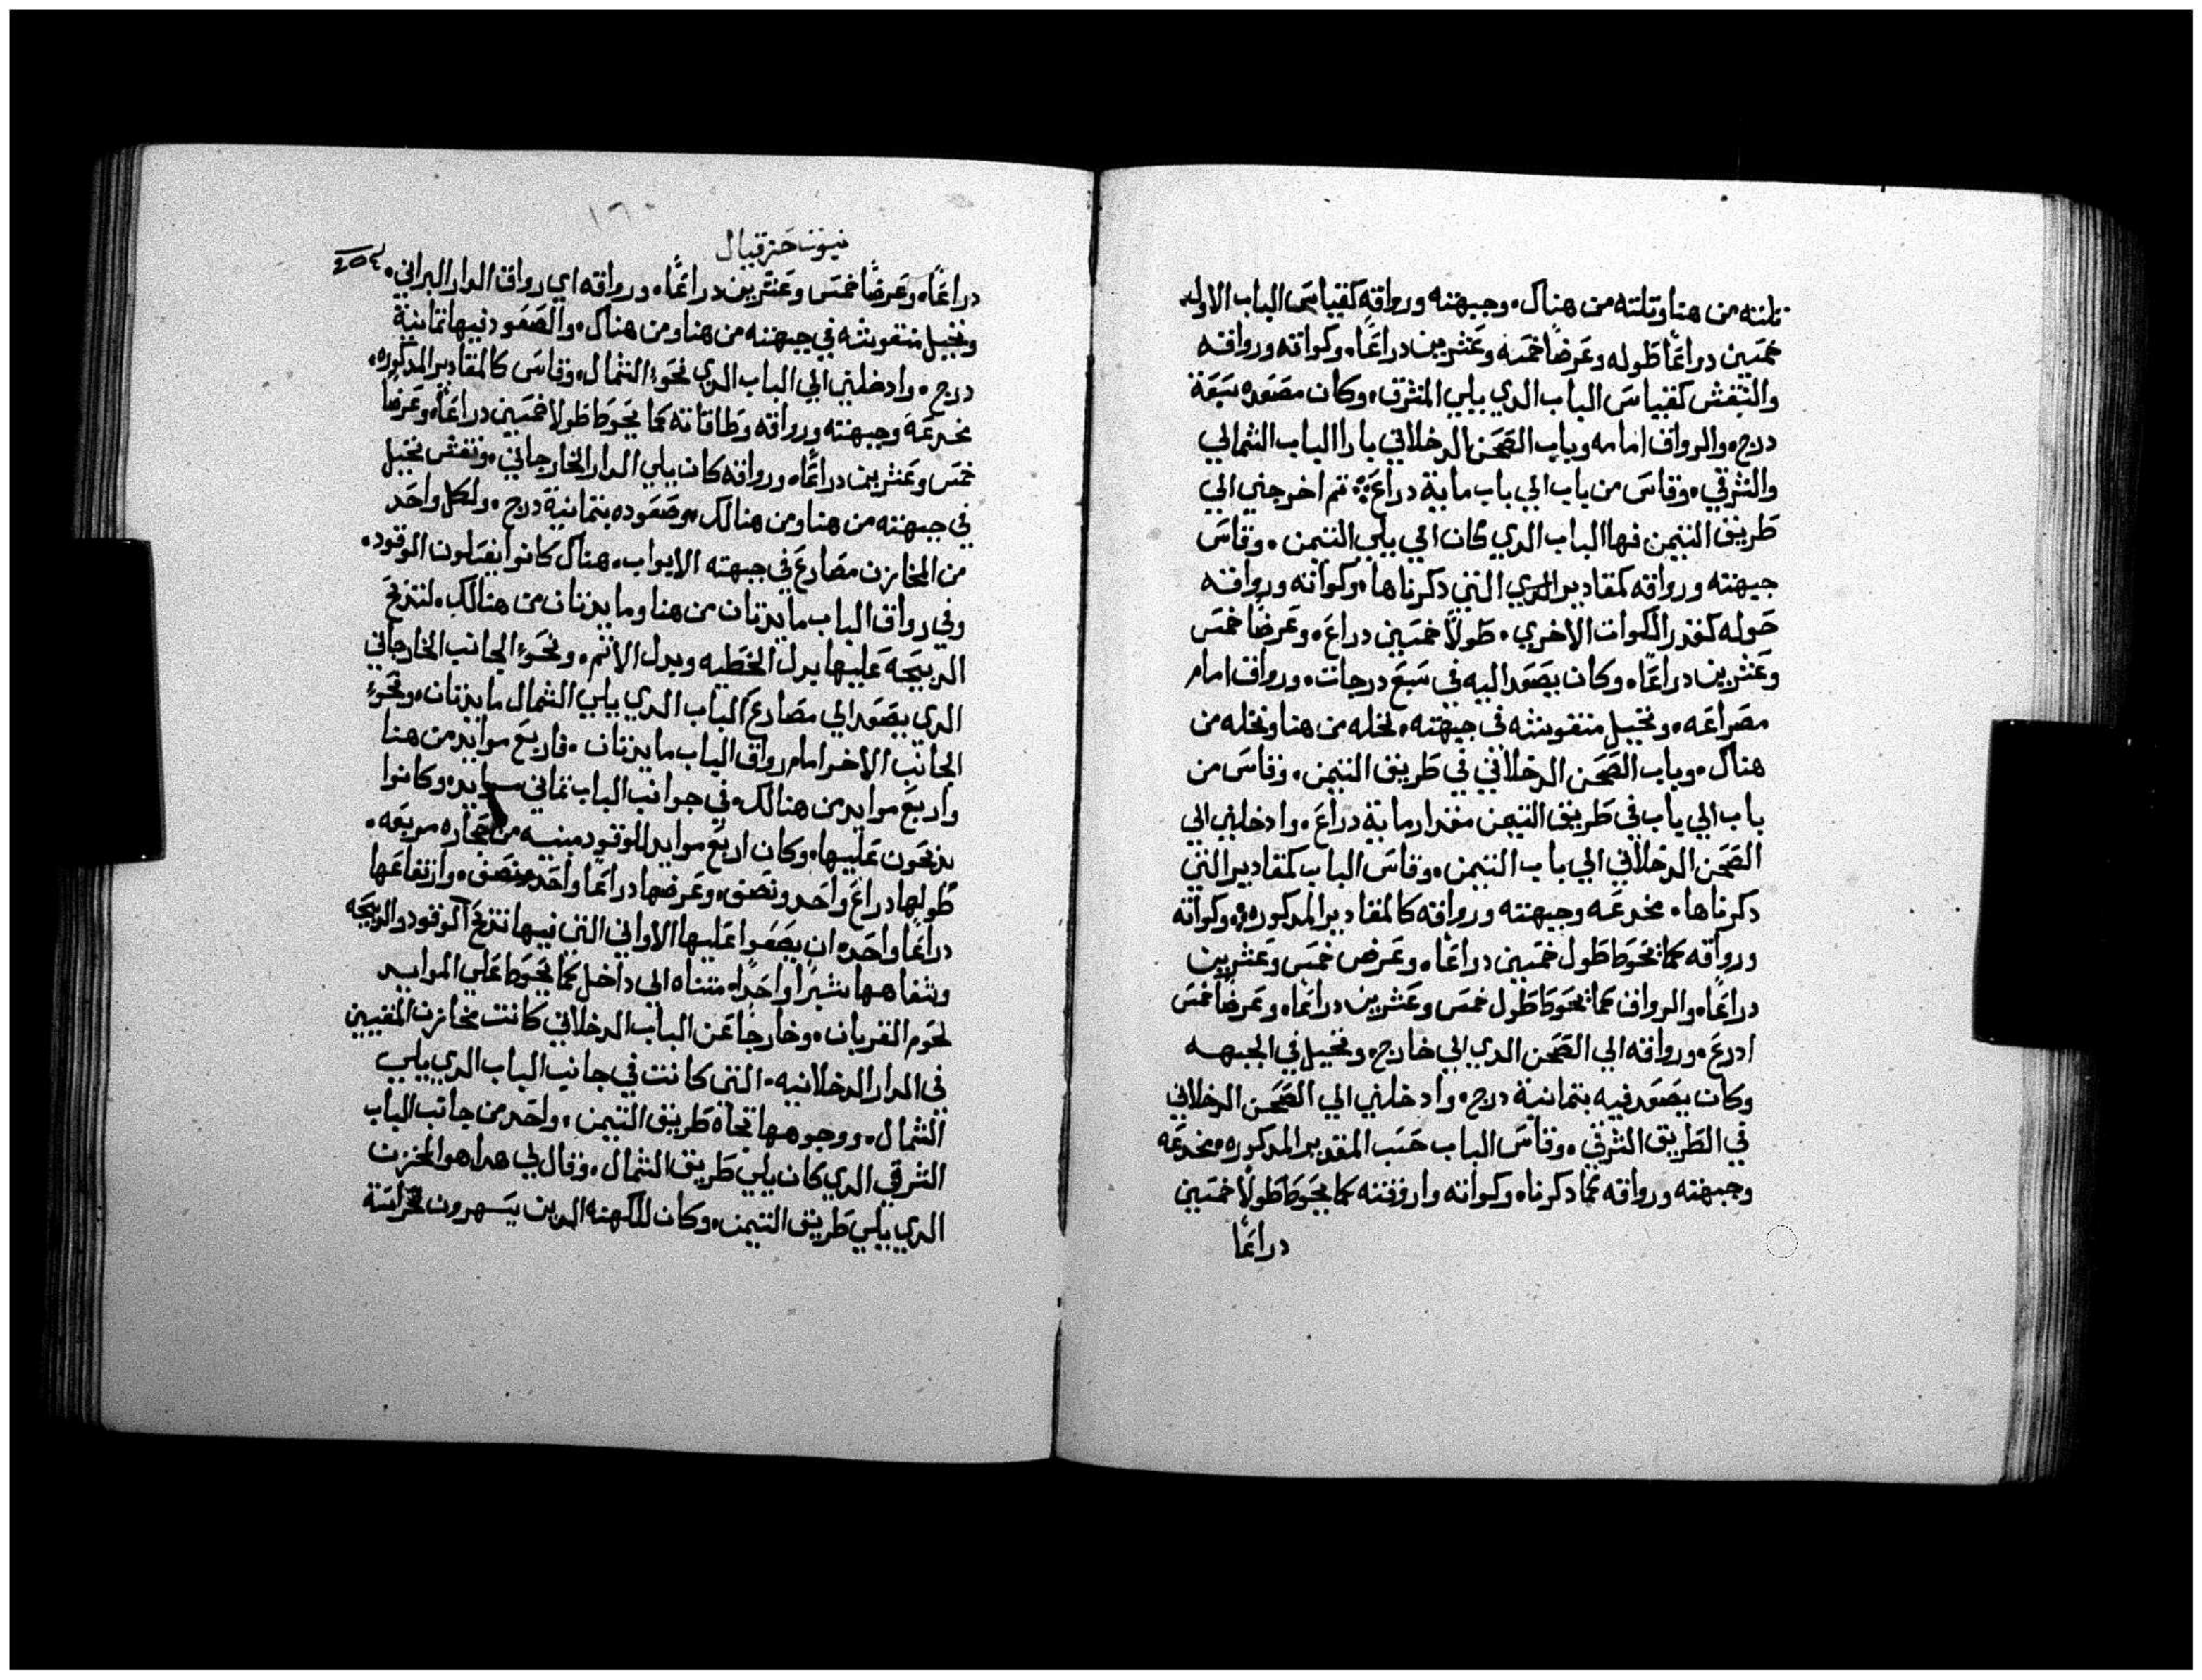 تلته من هنا وتلته من هناك. وجبهته ورواقه كقياس الباب الاول
خمسين دراعًا طوله وعرضًا خمسه وعشرين دراعًا. وكواته ورواقه
والنقش كقياس الباب الدي يلي المشرق. وكان مصعده سبعة
درج. والرواق امامه وباب الصحن الدخلاني بازا الباب الشمالي
والشرقي. وقاس من باب الي باب ماية دراع. تم اخرجني الي
طريق التيمن فها الباب الدي كان الي يلي التيمن. وقاس
جبهته ورواقه كمقادير الدي التي دكرناها. وكواته ورواقه
حوله كقدر الكوات الاخري. طولاً خمسين دراع. وعرضًا خمس
وعشرين دراعًا. وكان يصعد اليه في سبع درجات. ورواق امام
مصراعه. ونخيل منقوشه في جبهته. نخله من هنا ونخله من
هناك. وباب الصحن الدخلاني في طريق التيمن. وقاس من
باب الي باب في طريق التيمن مقدار ماية دراع. وادخلني الي
الصحن الدخلاني الي باب التيمن. وقاس الباب كمقادير التي
دكرناها. مخدعه وجبهته ورواقه كالمقادير المدكوره. وكواته
ورواقه كما يحوط طول خمسين دراعًا. وعرض خمس وعشرين
دراعًا. والرواق كما يحوط طول خمس وعشرين دراعًا. وعرضًا خمس
ادرع. ورواقه الي الصحن الدي الي خارج. ونخيل في الجبهه
وكان يصعد فيه بتمانية درج. وادخلني الي الصحن الدخلاني
في الطريق الشرقي. وقاس الباب حسب المقدير المدكوره. مخدعه
وجبهته ورواقه كما دكرناه وكواته واروقته كما يحوط طولاً خمسين
دراعًا
١٦٠
نبوت حزقيال
دراعًا. وعرضًا خمس وعشرين دراعًا. ورواقه اي رواق الدار البراني.
ونخيل منقوشه في جبهته من هنا ومن هناك. والصعود فيها تمانية
درج. وادخلني الي الباب الدي نحو الشمال. وقاس كالمقادير المدكوره.
مخدعه وجبهته ورواقه وطاقاته كما يحوط طولا خمسين دراعًا. وعرضًا
خمس وعشرين دراعًا. ورواقه كان يلي الدار الخارجاني. ونقش نخيل
في جبهته من هنا ومن هنالك. وصعوده بتمانية درج. ولكل واحد
من المخازن مصارع في جبهته الابواب. هناك كانوا يغسلون الوقود.
وفي رواق الباب مايدتان من هنا ومايدتان من هنالك. لتدبح
الدبيحه عليها بدل الخطيه وبدل الاتم. ونحو الجانب الخارجاني
الدي يصعد الي مصارع الباب الدي يلي الشمال مايدتان. ونحو
الجانب الاخر امام رواق الباب مايدتان. فاربع موايد من هنا
واربع موايد من هنالك. في جوانب الباب تماني موايد. وكانوا
يدبحون عليها. وكان اربع موايد للوقود مبنيه من حجاره مربعه.
طولها دراع واحد ونصف. وعرضها دراعًا واحد ونصف. وارتفاعها
دراعًا واحده ان يضعوا عليها الاواني التي فيها تدبح الوقود والدبيحه
وشفاهها شبرًا واحدًا. متناه الي داخل كما يحوط علي الموايد
لحوم القربان. وخارجًا عن الباب الدخلاني كانت مخازن المغنيين
في الدار الدخلانيه. التي كانت في جانب الباب الدي يلي
الشمال. ووجوهها تجاه طريق التيمن. واحد من جانب الباب
الشرقي الدي كان يلي طريق الشمال. وقال لي هدا هو المخزن
الدي يلي طريق التيمن. وكان للكهنه الدين يسهرون لحراسة